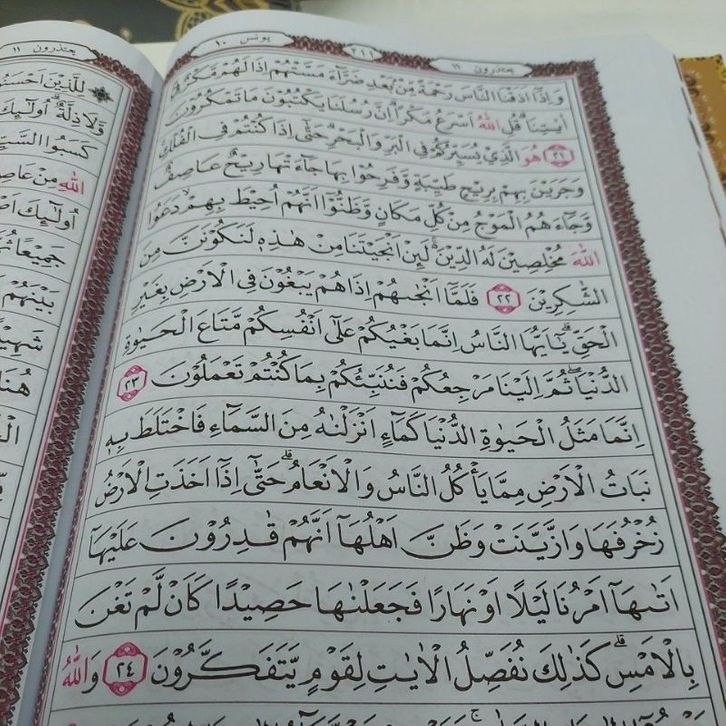 يعتذرون ١١
يونس ١٠
٢١١
يعتذرون ١١
وَاِذَآ اَذَقْنَا النَّاسَ رَحْمَةً مِّنْۢ بَعْدِ ضَرَّآءَ مَسَّتْهُمْ اِذَا لَهُمْ مَّكْرٌ فِيْٓ
اٰيٰتِنَا ۗ قُلِ اللّٰهُ اَسْرَعُ مَكْرًا ۗ اِنَّ رُسُلَنَا يَكْتُبُوْنَ مَا تَمْكُرُوْنَ
﴿٢١﴾ هُوَ الَّذِيْ يُسَيِّرُكُمْ فِى الْبَرِّ وَالْبَحْرِ ۗ حَتّٰٓى اِذَا كُنْتُمْ فِى الْفُلْكِۚ
وَجَرَيْنَ بِهِمْ بِرِيْحٍ طَيِّبَةٍ وَّفَرِحُوْا بِهَا جَآءَتْهَا رِيْحٌ عَاصِفٌ
وَّجَآءَهُمُ الْمَوْجُ مِنْ كُلِّ مَكَانٍ وَّظَنُّوْٓا اَنَّهُمْ اُحِيْطَ بِهِمْ ۙ دَعَوُا
اللّٰهَ مُخْلِصِيْنَ لَهُ الدِّيْنَ ۚ لَىِٕنْ اَنْجَيْتَنَا مِنْ هٰذِهٖ لَنَكُوْنَنَّ مِنَ
الشّٰكِرِيْنَ ﴿٢٢﴾ فَلَمَّآ اَنْجٰىهُمْ اِذَا هُمْ يَبْغُوْنَ فِى الْاَرْضِ بِغَيْرِ
الْحَقِّ ۗ يٰٓاَيُّهَا النَّاسُ اِنَّمَا بَغْيُكُمْ عَلٰٓى اَنْفُسِكُمْ مَّتَاعَ الْحَيٰوةِ
الدُّنْيَا ۖ ثُمَّ اِلَيْنَا مَرْجِعُكُمْ فَنُنَبِّئُكُمْ بِمَا كُنْتُمْ تَعْمَلُوْنَ ﴿٢٣﴾
اِنَّمَا مَثَلُ الْحَيٰوةِ الدُّنْيَا كَمَآءٍ اَنْزَلْنٰهُ مِنَ السَّمَآءِ فَاخْتَلَطَ بِهٖ
نَبَاتُ الْاَرْضِ مِمَّا يَأْكُلُ النَّاسُ وَالْاَنْعَامُ ۗ حَتّٰٓى اِذَآ اَخَذَتِ الْاَرْضُ
زُخْرُفَهَا وَازَّيَّنَتْ وَظَنَّ اَهْلُهَآ اَنَّهُمْ قٰدِرُوْنَ عَلَيْهَآ
اَتٰىهَآ اَمْرُنَا لَيْلًا اَوْ نَهَارًا فَجَعَلْنٰهَا حَصِيْدًا كَاَنْ لَّمْ تَغْنَ
بِالْاَمْسِ ۗ كَذٰلِكَ نُفَصِّلُ الْاٰيٰتِ لِقَوْمٍ يَّتَفَكَّرُوْنَ ﴿٢٤﴾ وَاللّٰهُ
لِلَّذِيْنَ اَحْسَنُوا
وَّلَا ذِلَّةٌ ۗ اُولٰٓىِٕكَ
كَسَبُوا السَّيِّ
اللّٰهِ مِنْ عَاصِمٍ
اُولٰٓىِٕكَ
جَمِيْعًا ثُمَّ
بَيْنَهُمْ
شَهِيْدًا
هُنَا